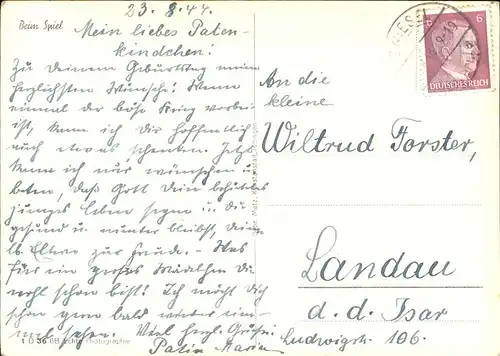 Beim Spiel
23. 8. 44.
Mein liebes Paten-
kindchen!
Zu Deinem Geburtstag meine
herzlichsten Wünsche! Wenn
einmal der böse Krieg vorbei
ist, kann ich Dir hoffentlich
auch etwas schenken. Jetzt
kann ich nur wünschen u.
beten, daß Gott Dein behütetes
junges Leben segne u. Du
gesund u. munter bleibst, deinen
lb. Eltern zur Freude. - Was
für ein großes Mädelchen Du
wohl schon bist! Ich möcht Dich
schon gern bald wieder ein-
mal sehen. Viel herzl. Grüße
Patin Maria
Echte Photographie
6 6
DEUTSCHES REICH
An die
kleine
Wiltrud Forster,
Landau
a. d. Isar
Ludwigstr. 106.